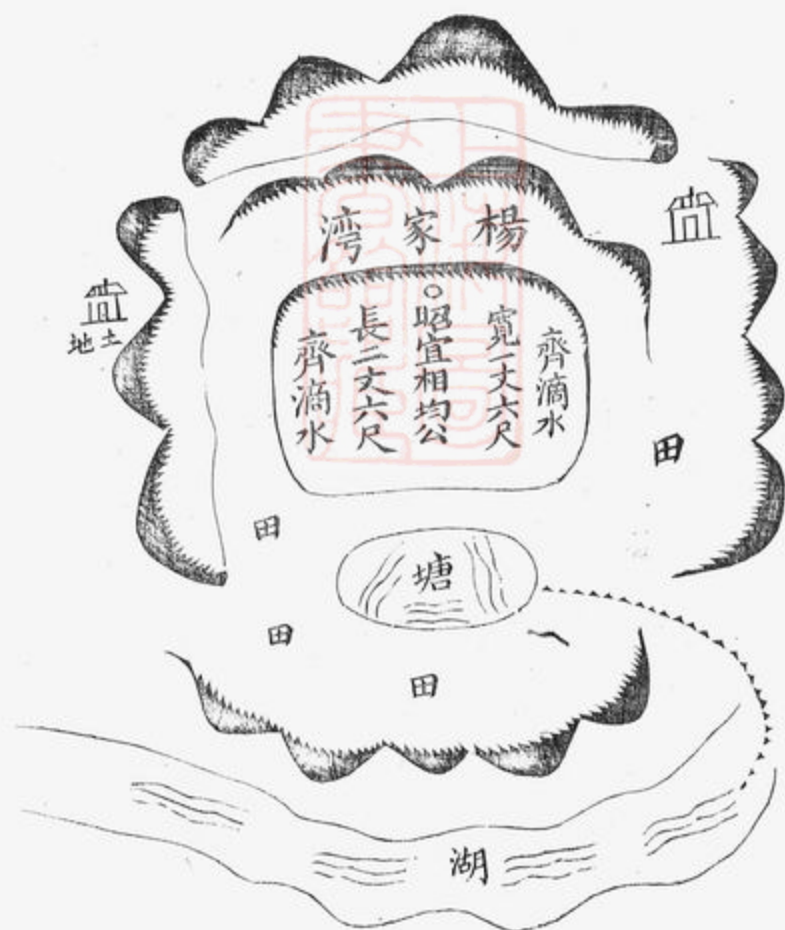 楊家湾
齊滴水
寬一丈六尺
昭宜相均公
長二丈六尺
齊滴水
土地
田
田
塘
田
田
湖